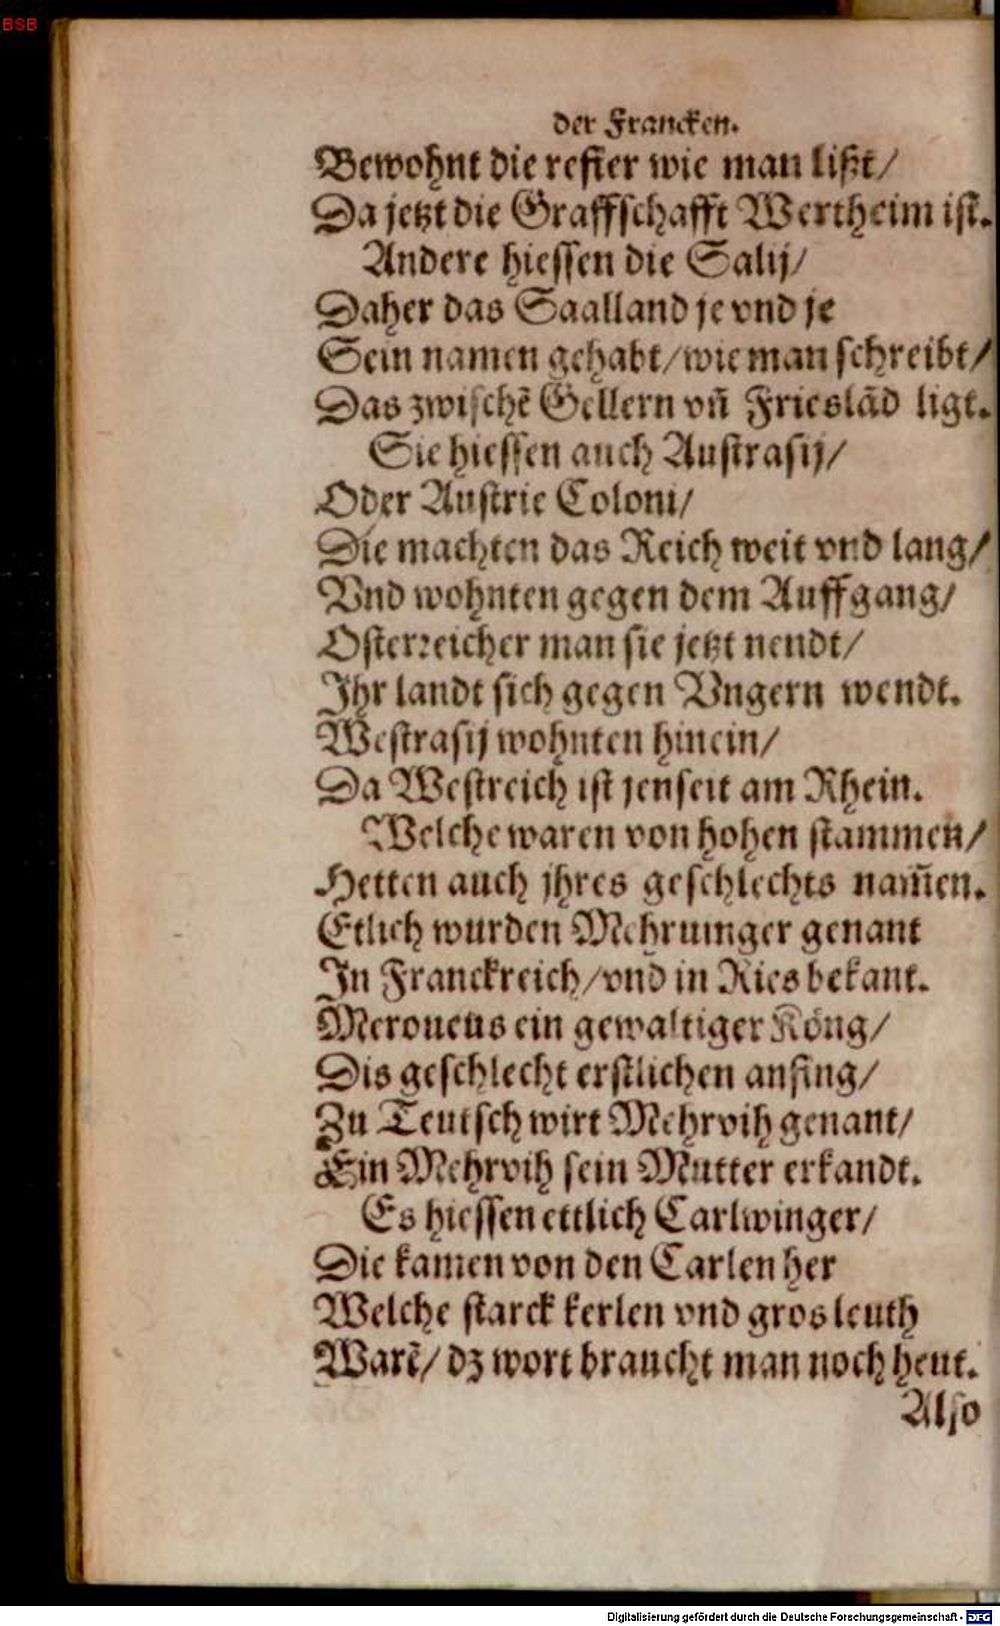 BSB
der Francken.
Bewohnt die refier wie man lißt/
Da jetzt die Graffschafft Wertheim ist.
Andere hiessen die Salij/
Daher das Saalland je vnd je
Sein namen gehabt/wie man schreibt/
Das zwischẽ Gellern vñ Frieslãd ligt.
Sie hiessen auch Austrasij/
Oder Austrie Coloni/
Die machten das Reich weit vnd lang/
Vnd wohnten gegen dem Auffgang/
Osterreicher man sie jetzt nendt/
Ihr landt sich gegen Vngern wendt.
Westrasij wohnten hinein/
Da Westreich ist jenseit am Rhein.
Welche waren von hohen stammen/
Hetten auch jhres geschlechts nam̃en.
Etlich wurden Mehruinger genant
In Franckreich/vnd in Ries bekant.
Meroueus ein gewaltiger Köng/
Dis geschlecht erstlichen anfing/
Zu Teutsch wirt Mehrvih genant/
Ein Mehrvih sein Mutter erkandt.
Es hiessen ettlich Carlwinger/
Die kamen von den Carlen her
Welche starck kerlen vnd gros leuth
Warẽ/ dz wort braucht man noch heut.
Also
Digitalisierung gefördert durch die Deutsche Forschungsgemeinschaft - DFG